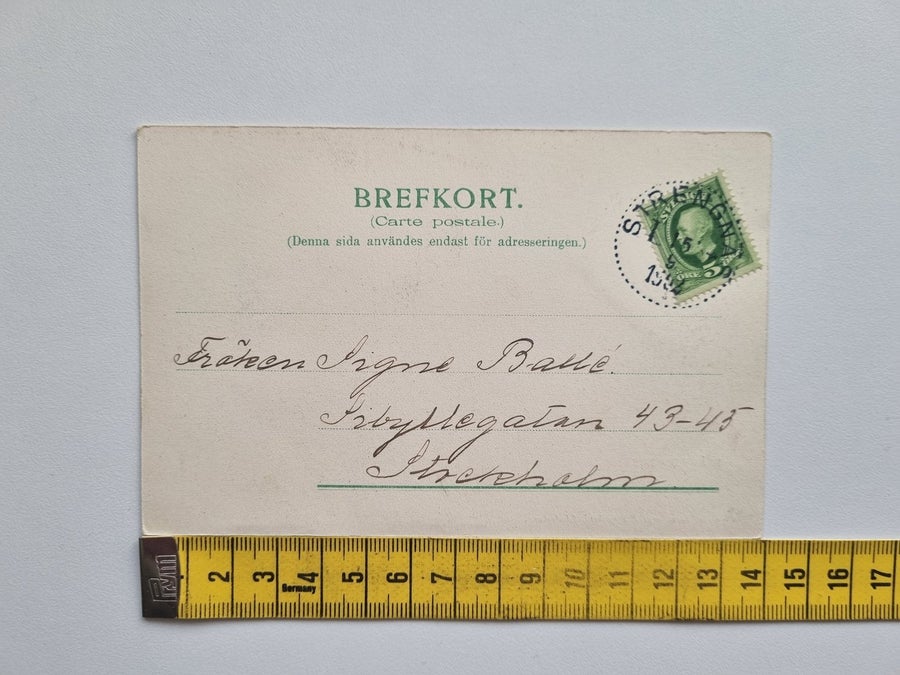 BREFKORT.
(Carte postale.)
(Denna sida användes endast för adresseringen.)
STRENGNÄS
15
5
1902
ÖRE 5
Fröken Signe Ballé.
Sibyllegatan 43-45
Stockholm.
2 3 4 5 6 7 8 9 10 11 12 13 14 15 16 17
Germany